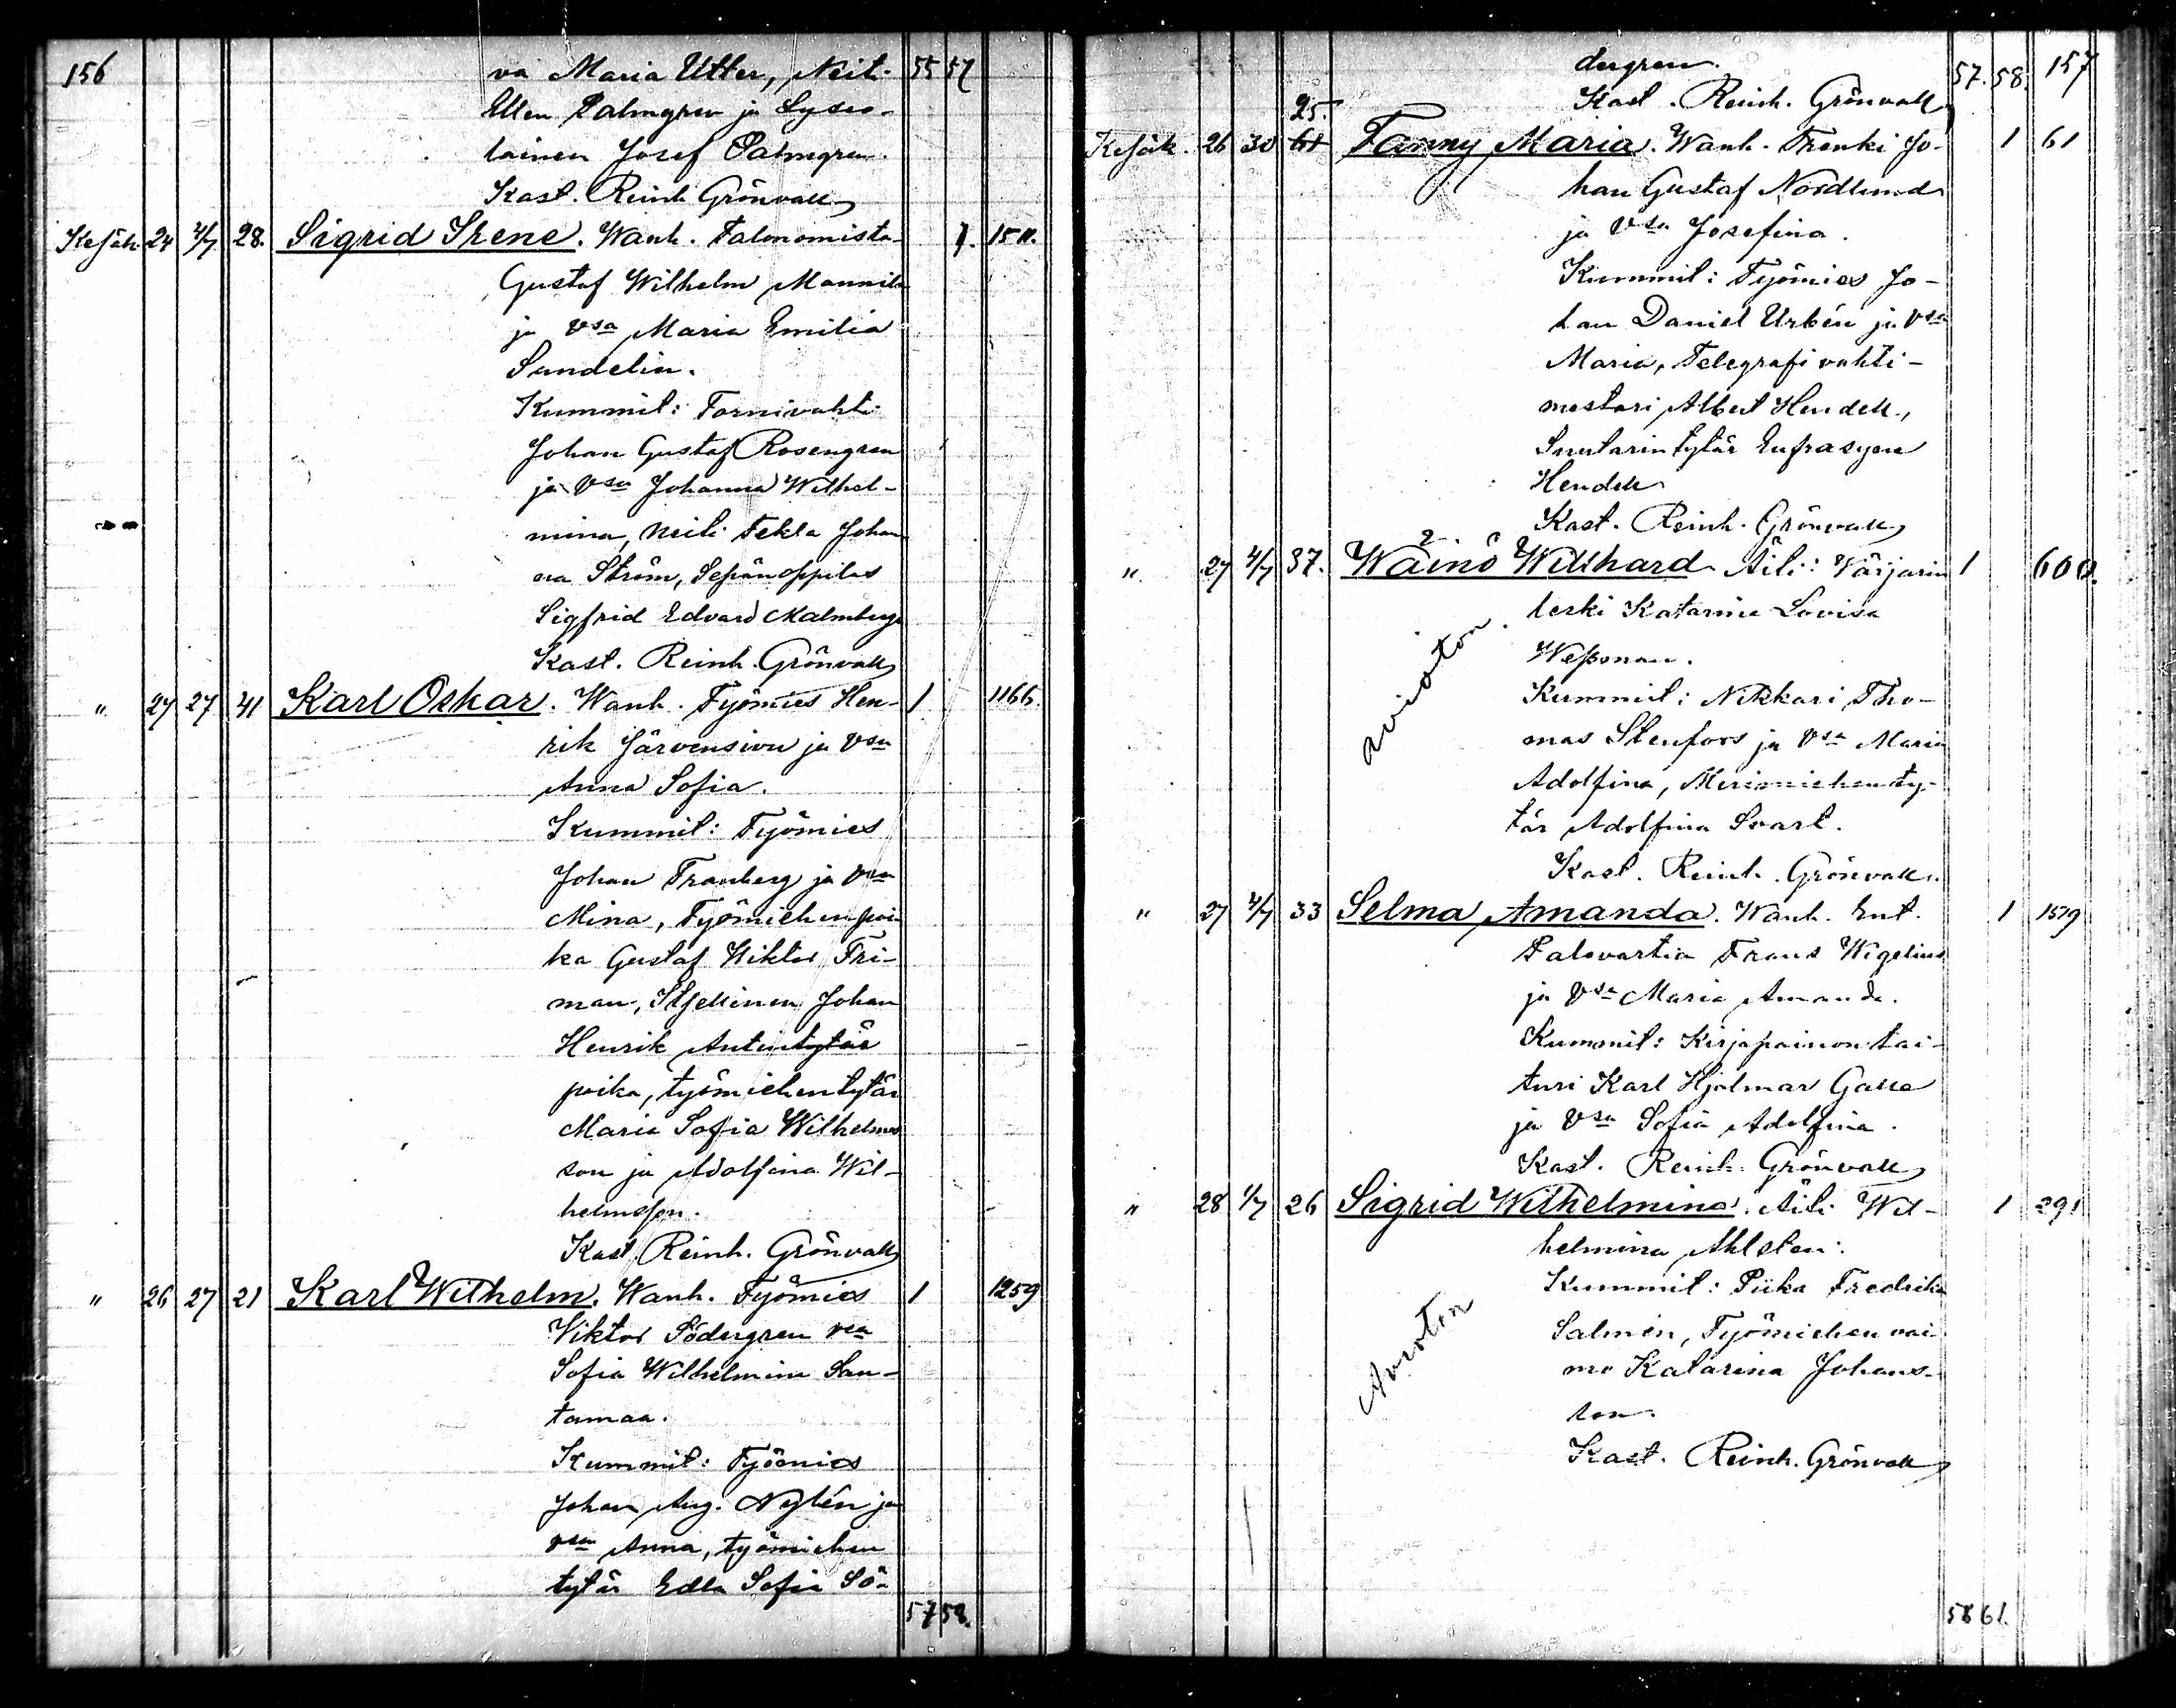 156
va Maria Utter, Neit. 55 57
Ellen Palmgren ja Lyseo-
lainen Josef Palmgren.
Kast. Reinh. Grönvall
Kesäk. 24 4/7 28. Sigrid Irene. Wanh. Talonomista- 1. 1511.
Gustaf Wilhelm Mannila
ja vsa Maria Emilia
Sundelin.
Kummit: Tornivahti
Johan Gustaf Rosengren
ja Vsa Johanna Wilhel-
mina, neiti Tekla Johan
na Ström, Sepänoppilas
Sigfrid Edvard Malmberg
Kast. Reinh. Grönvall
" 24 27 41 Karl Oskar. Wanh. Työmies Hen- 1 1166.
rik Järvensivu ja Vsa
Anna Sofia.
Kummit: Työmies
Johan Tranberg ja Vsa
Mina, Työmiehenpoi
ka Gustaf Wiktor Fri-
man, Itsellinen Johan
Henrik Antintytär
poika, työmiehentytär
Maria Sofia Wilhelms
son ja Adolfina Wil-
helmsson.
Kast Reinh. Grönvall
" 26 27 21 Karl Wilhelm. Wanh. Työmies 1 1259
Viktor Södergren vsa
Sofia Wilhelmina San-
tamaa.
Kummit: Työmies
Johan Aug. Nylén ja
vsa Anna, työmiehen
tytär Edla Sofia Sö-
57 58.
dergren. 57. 58. 157
Kast. Reinh. Grönvall
25.
Kesäk. 26 30 61 Fanny Maria. Wanh. Trenki Jo- 1 61
han Gustaf Nordlund
ja Vsa Josefina.
Kummit: Työmies Jo-
han Daniel Urbén ja Vsa
Maria, Telegrafi vahti-
mestari Albert Hendell,
Suutarin tytär Eufrasyne
Hendell
Kast. Reinh. Grönvall
" 27 4/7 37. Wäinö Willhard Äiti: Värjärin 1 600.
leski Katarina Lovisa
Wessman.
avioton.
Kummit: Nikkari Tho-
mas Stenfors ja Vsa Maria
Adolfina, Merimiehen ty-
tär Adolfina Svart.
Kast. Reinh. Grönvall.
" 27 4/7 33 Selma Amanda. Wanh. Ent. 1 1579
Palovartia Frans Wigelius
ja Vsa Maria Amanda.
Kummit: Kirjapainon tai-
turi Karl Hjalmar Galle
ja Vsa Sofia Adolfina.
Kast. Reinh. Grönvall
" 28 1/7 26 Sigrid Wilhelmina. Äiti Wil- 1 291
helmina Ahlsten.
Kummit: Piika Fredrika
Salmén, Työmiehen vai
mo Katarina Johans-
son.
Avioton
Kast. Reinh. Grönvall
58 61.